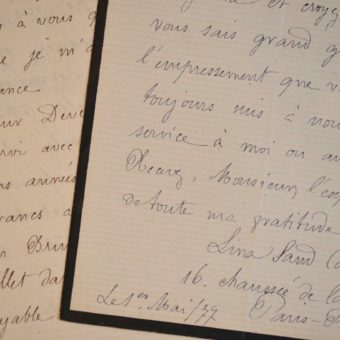 à vous
je m'a
ance
ur Deve
rvi avec
rs années
ances a
Brun
llet da
yable
et croyez
vous sais grand g
l'empressement que v
toujours mis à nou
service à moi ou au
Recevez, Monsieur, l'exp
de toute ma gratitude
Lina Sand (
16. chaussée de l
Paris
Le 1er Mai/77